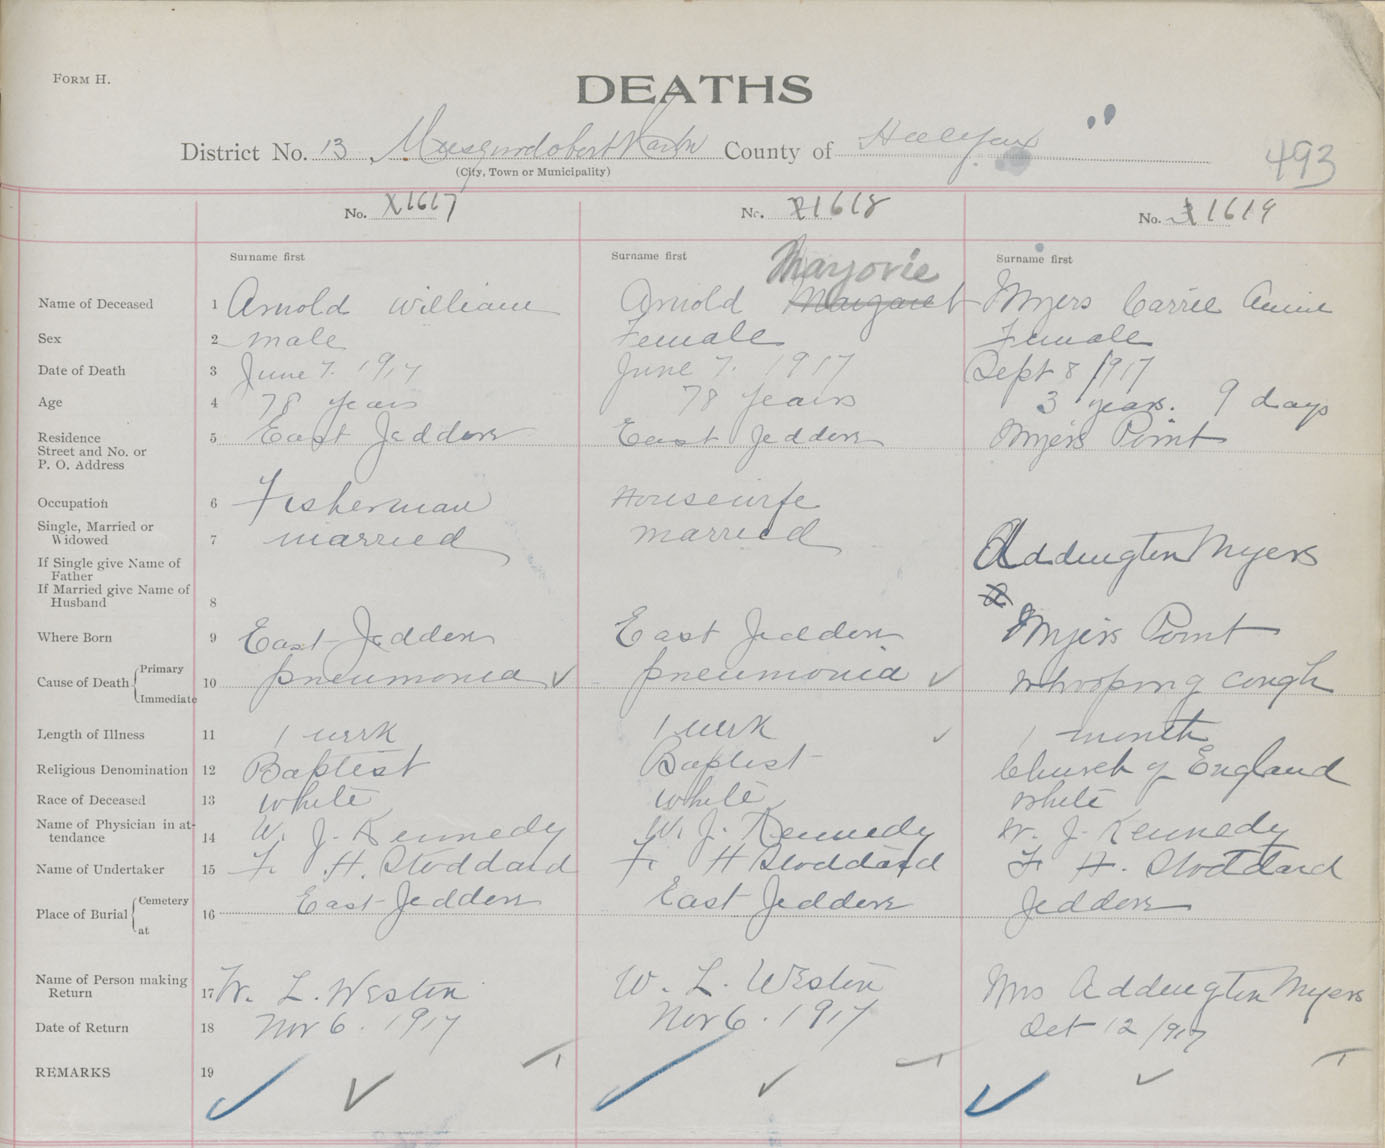 FORM H.
DEATHS
District No. 13 Musquodoboit Harbr County of Halifax
(City, Town or Municipality)
493
No. 1617 No. 1618 No. 1619
Surname first Surname first Surname first
Marjorie
Name of Deceased 1 Arnold William Arnold Margaret Myers Carrie Annie
Sex 2 male Female Female
Date of Death 3 June 7. 1917 June 7. 1917 Sept 8/1917
Age 4 78 years 78 years 3 years. 9 days
Residence 5 East Jeddore East Jeddore Myers Point
Street and No. or
P. O. Address
Occupation 6 Fisherman Housewife
Single, Married or
Widowed 7 married married
If Single give Name of Addington Myers
Father
If Married give Name of
Husband 8
Where Born 9 East Jeddore East Jeddore Myers Point
Primary
Cause of Death 10 pneumonia ✓ pneumonia ✓ whooping cough
Immediate
Length of Illness 11 1 week 1 week ✓ 1 month
Religious Denomination 12 Baptist Baptist Church of England
Race of Deceased 13 white white white
Name of Physician in at-
tendance 14 W. J. Kennedy W. J. Kennedy W. J. Kennedy
Name of Undertaker 15 F. H. Stoddard F. H Stoddard F. H. Stoddard
Cemetery
Place of Burial 16 East Jeddore East Jeddore Jeddore
at
Name of Person making
Return 17 W. L. Weston W. L. Weston Mrs Addington Myers
Date of Return 18 Nov 6. 1917 Nov 6. 1917 Oct 12/917
REMARKS 19 ✓ ✓ ✓ ✓ ✓ ✓